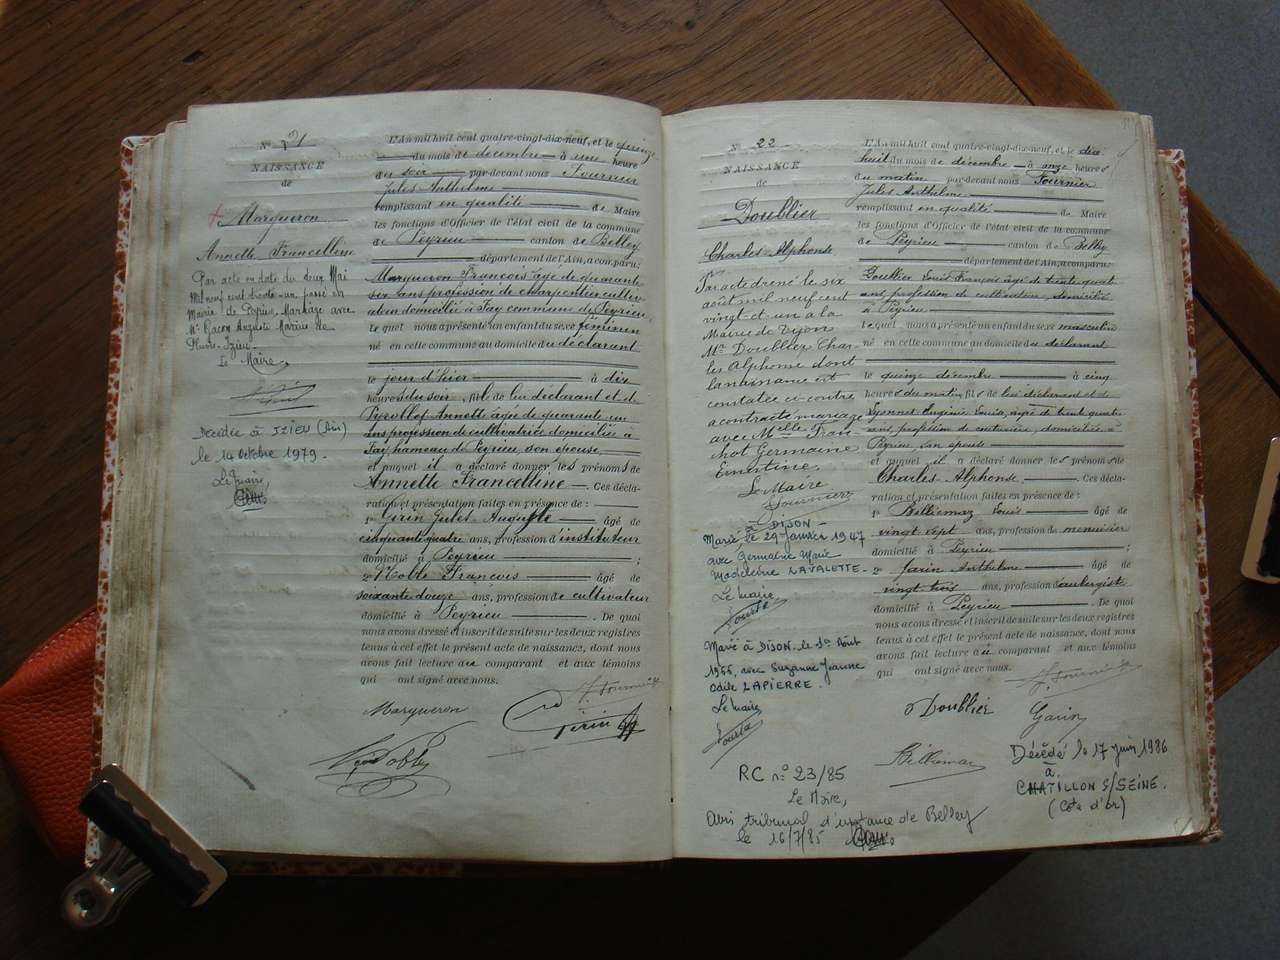 N° 21
NAISSANCE
de
+ Margueron
Annette Francelline
Par acte en date du deux Mai
Mil neuf cent trente-un, passé en
Mairie de Peyrieu, Mariage avec
Mr Gacon Auguste Marius de
Izieu.
Le Maire
Décédée à IZIEU (Ain)
le 14 octobre 1979.
Le maire,
L'An mil huit cent quatre-vingt-dix-neuf, et le quinze
du mois de décembre à une heure
du soir par-devant nous Fournier
Jules Anthelme
remplissant en qualité de Maire
les fonctions d'Officier de l'état civil de la commune
de Peyrieu canton de Belley
département de l'Ain, a comparu:
Margueron François âgé de quarante
six ans profession de charpentier cultiv
ateur domicilié à Fay commune de Peyrieu,
lequel nous a présenté un enfant du sexe féminin
né en cette commune au domicile du déclarant
le jour d'hier à dix
heures du soir, fils de lui déclarant et de
Perollet Annette âgée de quarante un
ans profession de cultivatrice domiciliée à
Fay, hameau de Peyrieu, son épouse,
et auquel il a déclaré donner les prénoms de
Annette Francelline. Ces décla-
ration et présentation faites en présence de :
1° Girin Jules Auguste âgé de
cinquante quatre ans, profession d'instituteur
domicilié à Peyrieu ;
2° Nolte François âgé de
soixante douze ans, profession de cultivateur
domicilié à Peyrieu. De quoi
nous avons dressé et inscrit de suite sur les deux registres
tenus à cet effet le présent acte de naissance, dont nous
avons fait lecture au comparant et aux témoins
qui ont signé avec nous.
J. Fournier
Margueron
Girin
N° 22
NAISSANCE
de
Doublier
Charles Alphonse
Par acte dressé le six
août mil neuf cent
vingt-et un à la
Mairie de Dijon
Mr Doublier Char-
les Alphonse dont
la naissance est
constatée ci-contre
a contracté mariage
avec Melle Fran-
chot Germaine
Ernestine.
Le Maire
Fournier
à DIJON
Marié, le 29 Janvier 1947
avec Germaine Marie
Madeleine LAVALETTE.
Le maire
Marié à DIJON, le 10 Août
1966, avec Suzanne Jeanne
Odile LAPIERRE.
Le maire
RC n° 23/85
Le Maire,
Avis tribunal d'instance de Belley
le 16/7/85
L'An mil huit cent quatre-vingt-dix-neuf, et le dix
huit du mois de décembre à onze heures
du matin par-devant nous Fournier
Jules Anthelme
remplissant en qualité de Maire
les fonctions d'Officier de l'état civil de la commune
de Peyrieu canton de Belley
département de l'Ain, a comparu:
Doublier Louis François âgé de trente quatre
ans profession de cultivateur, domicilié
à Peyrieu
lequel nous a présenté un enfant du sexe masculin
né en cette commune au domicile du déclarant
le quinze décembre à cinq
heures du matin, fils de lui déclarant et de
Lyonnet Eugénie Louise, âgée de trente quatre
ans, profession de couturière, domiciliée à
Peyrieu, son épouse
et auquel il a déclaré donner les prénoms de
Charles Alphonse. Ces décla-
ration et présentation faites en présence de :
1° Belliemaz Louis âgé de
vingt sept ans, profession de menuisier
domicilié à Peyrieu ;
2° Garin Anthelme âgé de
vingt trois ans, profession d'aubergiste
domicilié à Peyrieu. De quoi
nous avons dressé et inscrit de suite sur les deux registres
tenus à cet effet le présent acte de naissance, dont nous
avons fait lecture au comparant et aux témoins
qui ont signé avec nous.
J. Fournier
Doublier
Garin
Belliemaz
Décédé le 17 juin 1986
à
CHATILLON S/SEINE.
(Côte d'or)